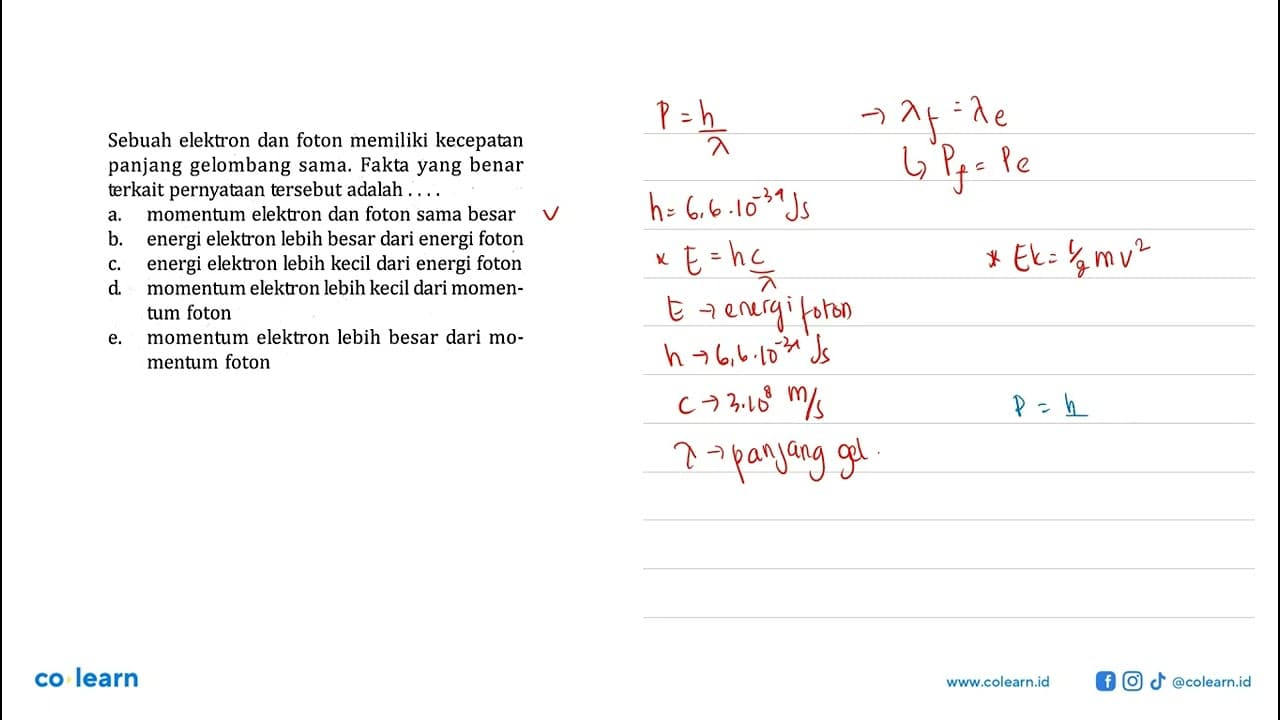 Sebuah elektron dan foton memiliki kecepatan
panjang gelombang sama. Fakta yang benar
terkait pernyataan tersebut adalah . . . .
a. momentum elektron dan foton sama besar V
b. energi elektron lebih besar dari energi foton
c. energi elektron lebih kecil dari energi foton
d. momentum elektron lebih kecil dari momen-
tum foton
e. momentum elektron lebih besar dari mo-
mentum foton
P = h/λ
→ λf = λe
↳ Pf = Pe
h = 6,6 . 10⁻³⁴ Js
* E = hc/λ
* Ek = 1/2 mv²
E → energi foton
h → 6,6 . 10⁻³⁴ Js
c → 3.10⁸ m/s
P = h
λ → panjang gel.
co learn
www.colearn.id
@colearn.id